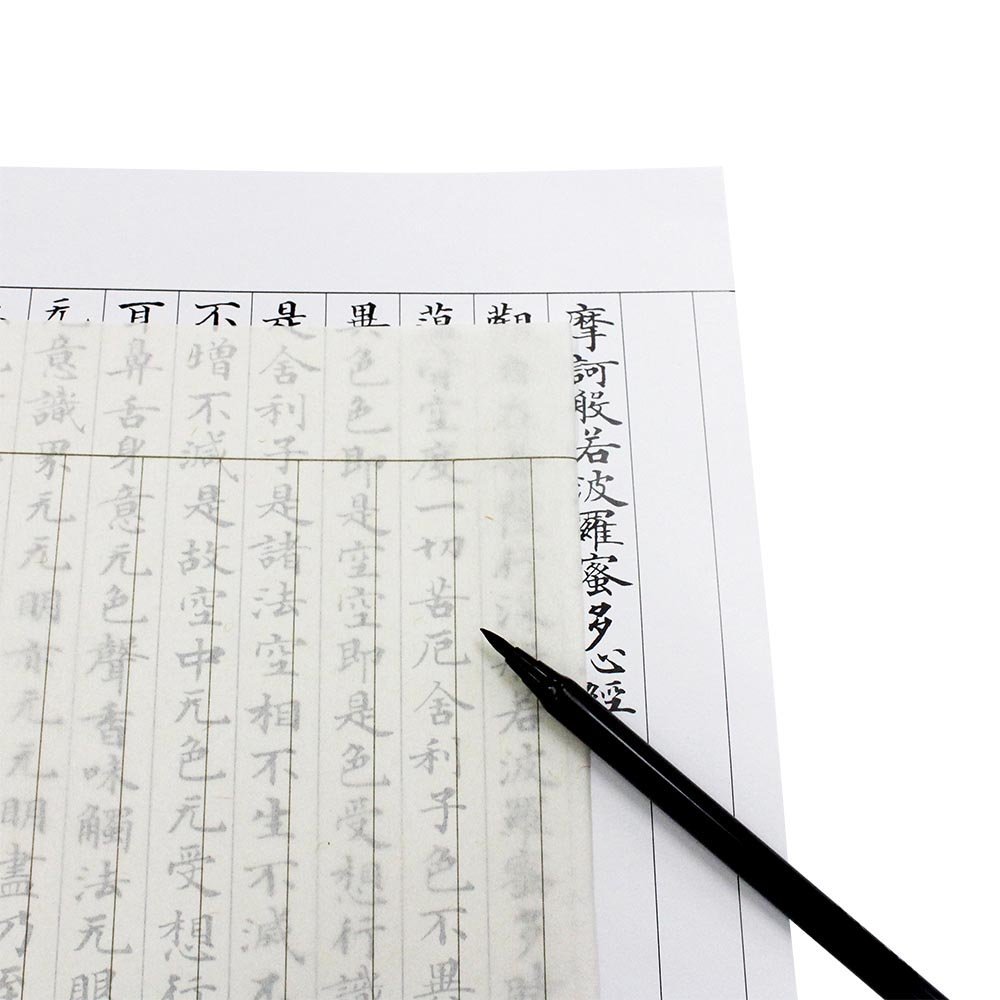 摩訶般若波羅蜜多心經
觀自在菩薩行深般若波羅蜜多時
蕰皆空度一切苦厄舍利子色不異
異色色即是空空即是色受想行識
是舍利子是諸法空相不生不滅不
不增不減是故空中无色无受想行
耳鼻舌身意无色聲香味觸法无眼
无意識界无无明亦无无明盡乃至